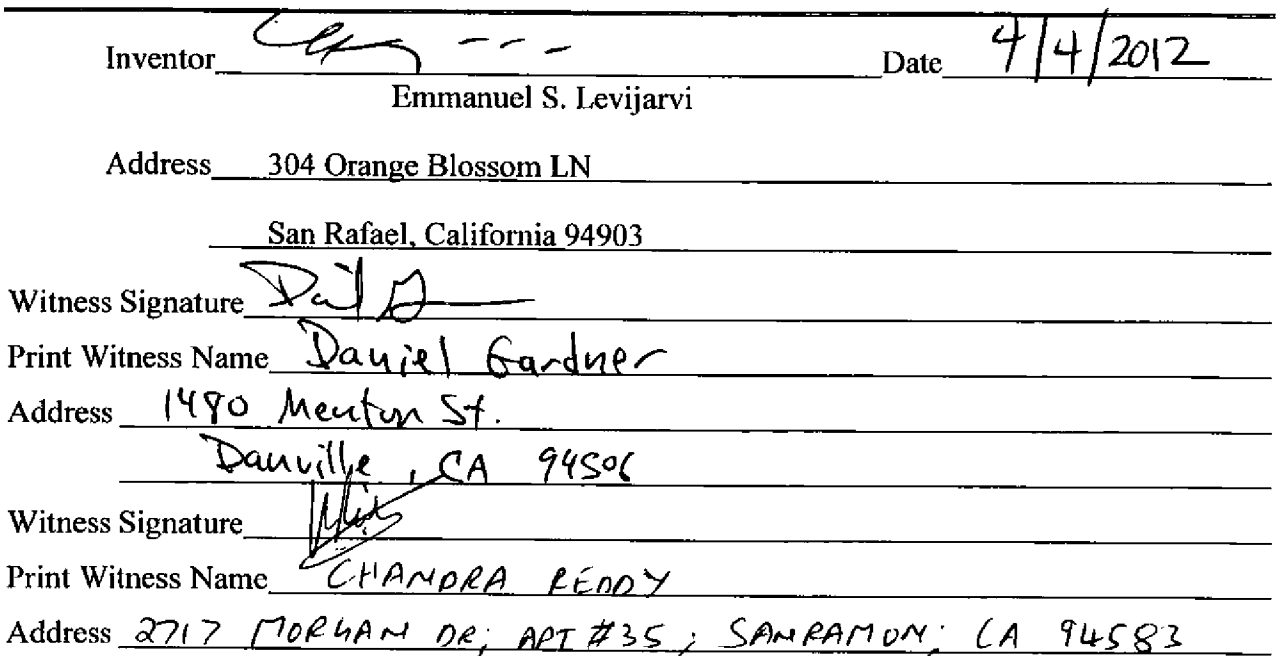 Inventor Date 4/4/2012
Emmanuel S. Levijarvi
Address 304 Orange Blossom LN
San Rafael, California 94903
Witness Signature
Print Witness Name Daniel Gardner
Address St.
Danville, CA 94506
Witness Signature
Print Witness Name CHANDRA REDDY
Address 2717 MORGAN DR; APT #35; SANRAMON; CA 94583